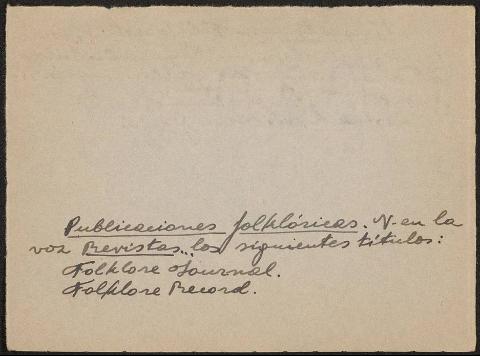 Publicaciones folklóricas. V. en la
voz Revistas... los siguientes títulos:
Folklore Journal.
Folklore Record.